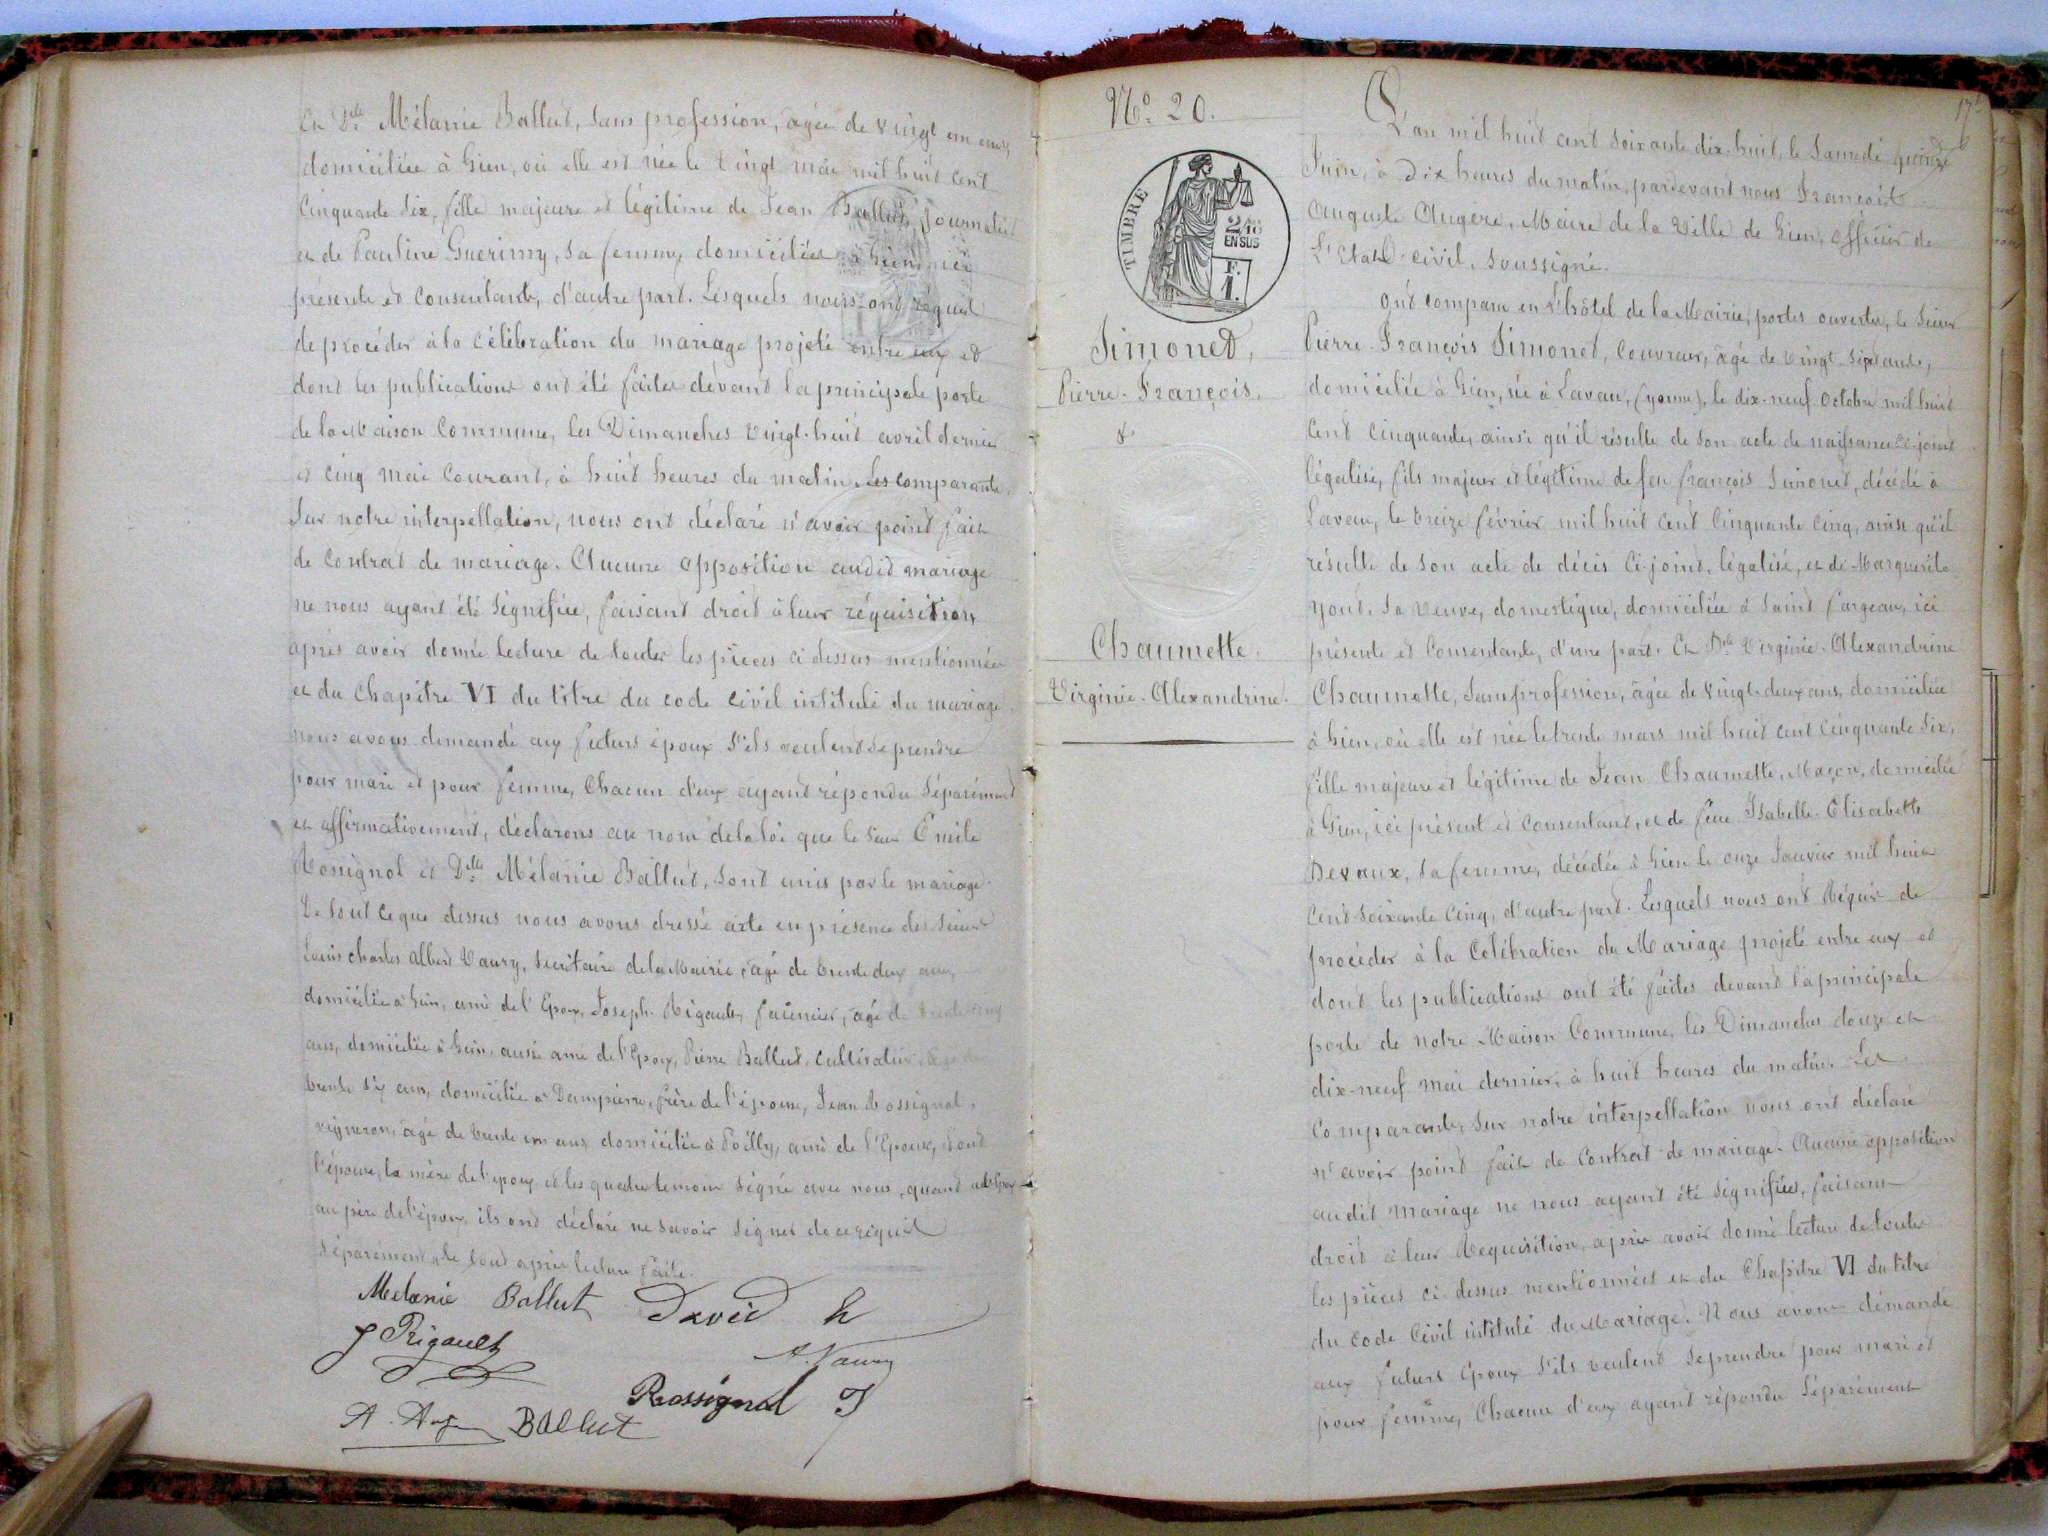 Et Dlle Mélanie Ballut, sans profession, agée de vingt un ans,
domiciliée à Gien, où elle est née le vingt mai mil huit cent
cinquante six, fille majeure et légitime de Jean Ballut, journalier
et de Pauline Guerimy, sa femme, domiciliés à Gien, ici
présents et consentants, d'autre part. Lesquels nous ont requis
de procéder à la célébration du mariage projeté entre eux et
dont les publications ont été faites devant la principale porte
de la Maison Commune, les Dimanches vingt-huit avril dernier
et cinq mai courant, à huit heures du matin. Les comparants,
sur notre interpellation, nous ont déclaré n'avoir point fait
de contrat de mariage. Aucune opposition audit mariage
ne nous ayant été signifiée, faisant droit à leur réquisition,
après avoir donné lecture de toutes les pièces ci dessus mentionnées
et du chapitre VI du titre du code civil intitulé du mariage
nous avons demandé aux futurs époux s'ils veulent se prendre
pour mari et pour femme, chacun d'eux ayant répondu séparément
et affirmativement, déclarons au nom de la loi que le sieur Emile
Rossignol et Dlle Mélanie Ballut, sont unis par le mariage.
De tout ce que dessus nous avons dressé acte en présence des sieurs
Louis Charles Albert Vaury, secrétaire de la Mairie, agé de trente deux ans,
domicilié à Gien, ami de l'Epoux, Joseph Rigault, faïencier, agé de trente cinq
ans, domicilié à Gien, aussi ami de l'Epoux, Pierre Ballut, cultivateur, agé de
trente six ans, domicilié à Dampierre, frère de l'épouse, Jean Rossignol,
vigneron, agé de trente un ans, domicilié à Poilly, ami de l'Epoux, dont
l'épouse, la mère de l'epoux et les quatre temoins signé avec nous, quand
au père de l'époux, ils ont déclaré ne savoir signer de ce requis
séparément, le tout après lecture faite.
Melanie Ballut David h
J Rigault
A. Vaury
Rossignol J
A. Aug Ballut
No. 20.
TIMBRE
2/10
EN SUS
F.
1.
Simonet,
Pierre-François,
&
Chaumette
Virginie-Alexandrine.
L'an mil huit cent soixante dix-huit, le samedi quinze
Juin, à dix heures du matin, pardevant nous François
Auguste Augère, Maire de la Ville de Gien, officier de
l'Etat-civil, soussigné.
Ont comparu en l'hôtel de la Mairie, portes ouvertes, le sieur
Pierre-François Simonet, couvreur, âgé de vingt-sept ans,
domicilié à Gien, né à Lavau, (yonne), le dix-neuf octobre mil huit
cent cinquante, ainsi qu'il résulte de son acte de naissance ci-joint
légalisé, fils majeur et légitime de feu françois Simonet, décédé à
Lavau, le treize février mil huit cent cinquante cinq, ainsi qu'il
résulte de son acte de décès ci-joint, légalisé, et de Marguerite
yont, sa veuve, domestique, domiciliée à Saint fargeau, ici
présente et consentante, d'une part. Et Dlle Virginie-Alexandrine
Chaumette, sans profession, âgée de vingt-deux ans, domiciliée
à Gien, où elle est née le trente mars mil huit cent cinquante six,
fille majeure et légitime de Jean Chaumette, Maçon, domicilié
à Gien, ici présent et consentant, et de feue Isabelle-Elisabeth
Devaux, sa femme, décédée à Gien le onze Janvier mil huit
cent-soixante cinq, d'autre part. Lesquels nous ont Réquis de
procéder à la Célébration du Mariage projeté entre eux et
dont les publications ont été faites devant la principale
porte de notre Maison Commune, les Dimanches douze et
dix-neuf mai dernier, à huit heures du matin. Les
Comparants, sur notre interpellation nous ont déclaré
n'avoir point fait de Contrat de mariage. Aucune opposition
audit mariage ne nous ayant été signifiée, faisant
droit à leur Requisition, après avoir donné lecture de toutes
les pièces ci-dessus mentionnées et du Chapitre VI du titre
du code Civil intitulé du Mariage. Nous avons démandé
aux futurs époux s'ils veulent se prendre pour mari et
pour femme, Chacun d'eux ayant répondu séparément